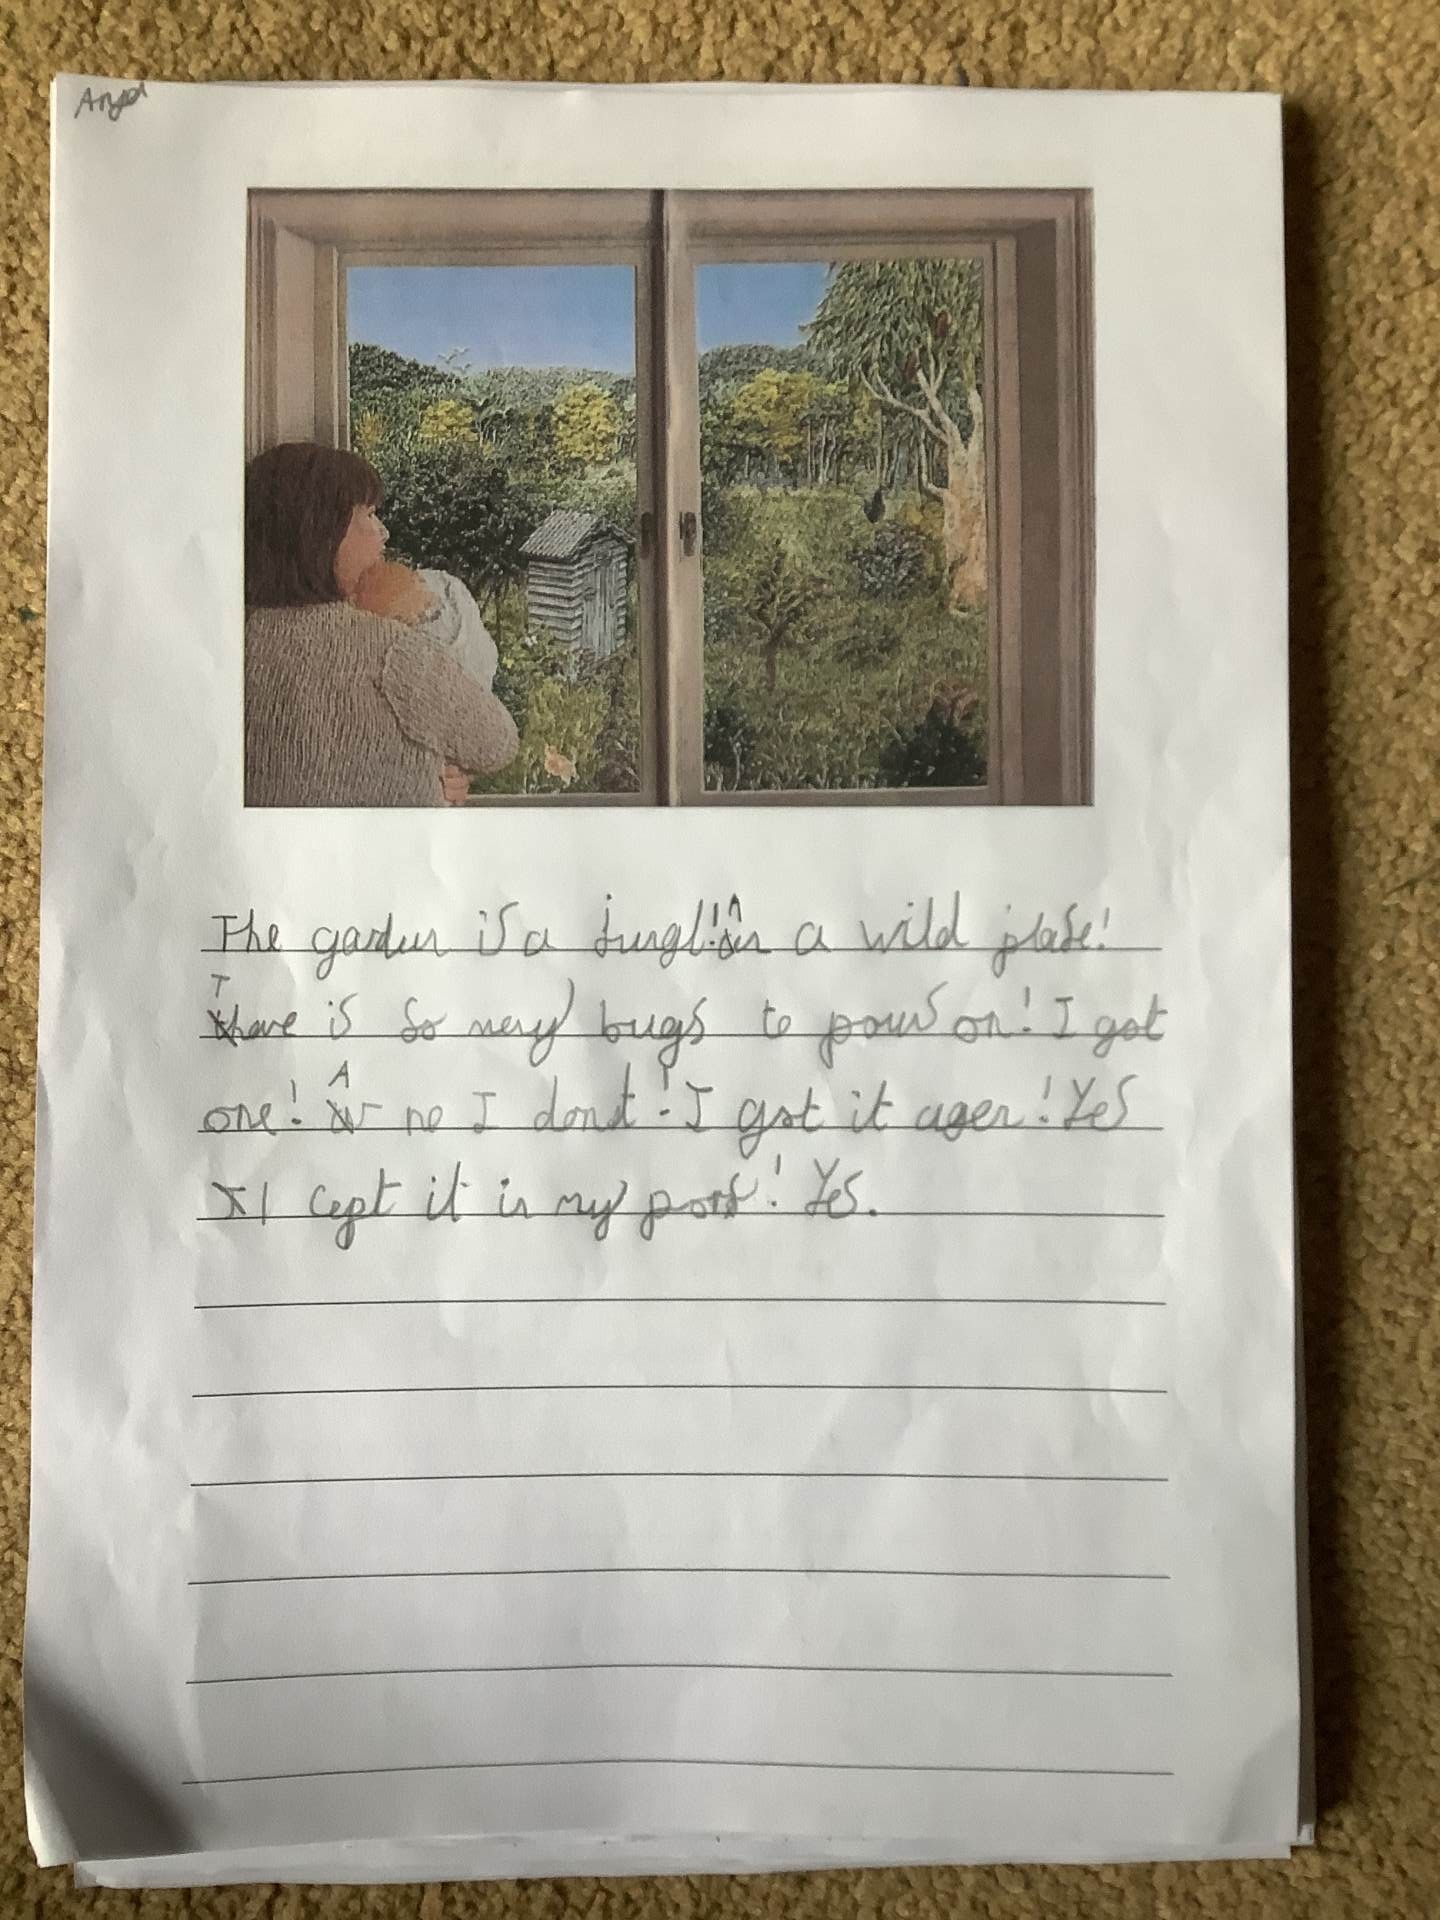 The garden is a jungl! An a wild plase!
Thare is so meny bugs to pows on! I got
one! Aw no I dond! I got it agen! Yes
I cept it in my pors! Yes.